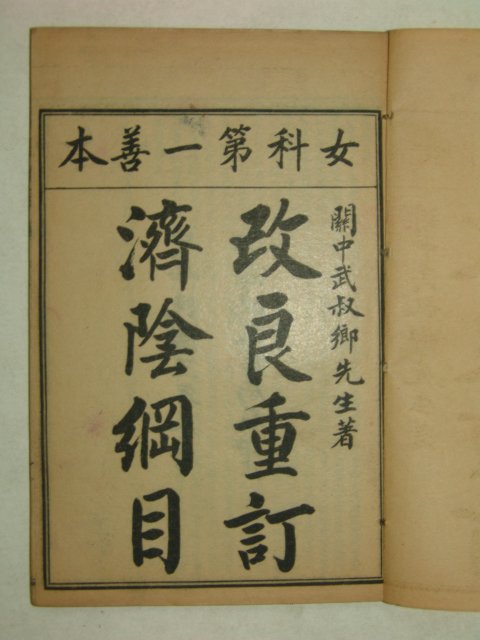 女科第一善本
關中武叔鄉先生著
改良重訂
濟陰綱目